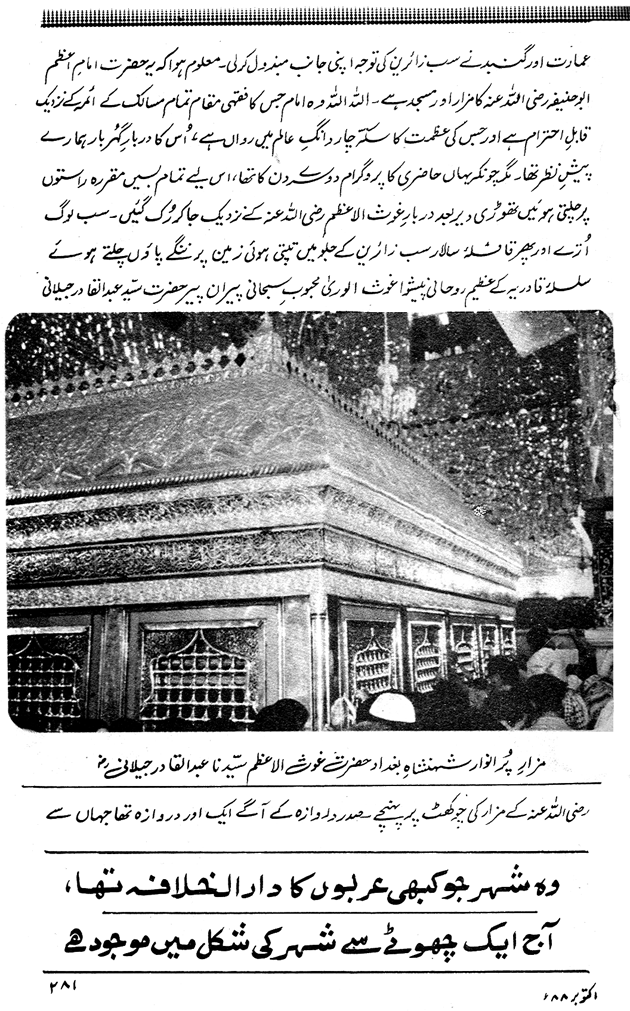 عمارت اور گنبد نے سب زائرین کی توجہ اپنی جانب مبذول کرلی۔ معلوم ہوا کہ یہ حضرت امام اعظم
ابو حنیفہ رضی اللہ عنہ کا مزار اور مسجد ہے۔ اللہ اللہ وہ امام جس کا فقہی مقام تمام مسالک کے ائمہ کے نزدیک
قابلِ احترام ہے اور جس کی عظمت کا سکّہ چار دانگِ عالم میں رواں ہے، اُس کا دربارِ گہربار ہمارے
پیشِ نظر تھا۔ مگر چونکہ یہاں حاضری کا پروگرام دوسرے دن کا تھا، اس لیے تمام بسیں مقررہ راستوں
پر چلتی ہوئیں تھوڑی دیر بعد دربارِ غوث الاعظم رضی اللہ عنہ کے نزدیک جا کر رُک گئیں۔ سب لوگ
اُترے اور پھر قافلہ سالار سب زائرین کے جلو میں تپتی ہوئی زمین پر ننگے پاؤں چلتے ہوئے
سلسلۂ قادریہ کے عظیم روحانی پیشوا غوث الوریٰ محبوبِ سبحانی پیران پیر حضرت سیّد عبدالقادر جیلانی
مزارِ پُر انوار شہنشاہِ بغداد حضرت غوث الاعظم سیّدنا عبدالقادر جیلانی رضؓ
رضی اللہ عنہ کے مزار کی چوکھٹ پر پہنچے۔ صدر دروازہ کے آگے ایک اور دروازہ تھا جہاں سے
وہ شہر جو کبھی عربوں کا دارالخلافہ تھا،
آج ایک چھوٹے سے شہر کی شکل میں موجود ہے
اکتوبر ۸۸ء
۲۸۱